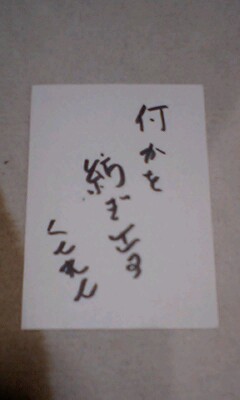 何かを
紡ぎ出る
くんれん